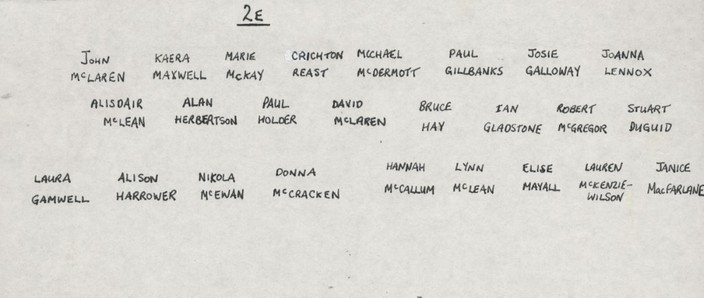 2E
JOHN KAERA MARIE CRICHTON MICHAEL PAUL JOSIE JOANNA
McLAREN MAXWELL McKAY REAST McDERMOTT GILLBANKS GALLOWAY LENNOX
ALISDAIR ALAN PAUL DAVID BRUCE IAN ROBERT STUART
McLEAN HERBERTSON HOLDER McLAREN HAY GLADSTONE McGREGOR DUGUID
LAURA ALISON NIKOLA DONNA HANNAH LYNN ELISE LAUREN JANICE
GAMWELL HARROWER McEWAN McCRACKEN McCALLUM McLEAN MAYALL McKENZIE- MACFARLANE
WILSON